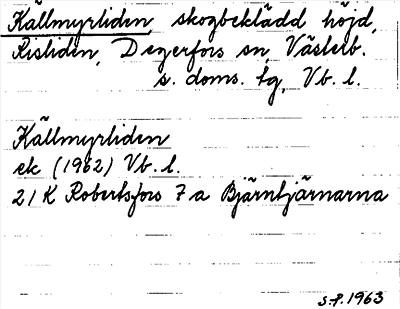 Källmyrliden, skogbeklädd höjd,
Risliden, Degerfors sn, Västerb.
s. doms. tg, Vb. l.
Källmyrliden
ek (1962) Vb. l.
21 K Robertsfors 7 a Bjärntjärnarna
S.P. 1963